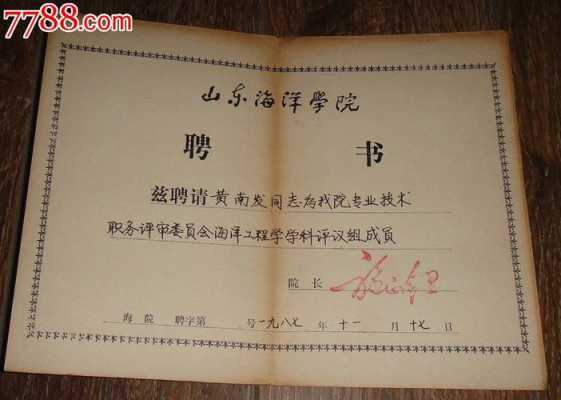 7788.com
山东海洋学院
聘 书
兹聘请黄南发同志为我院专业技术
职务评审委员会海洋工程学学科评议组成员
院 长
海 院 聘字第 号 一九八七 年 十一 月 十七 日